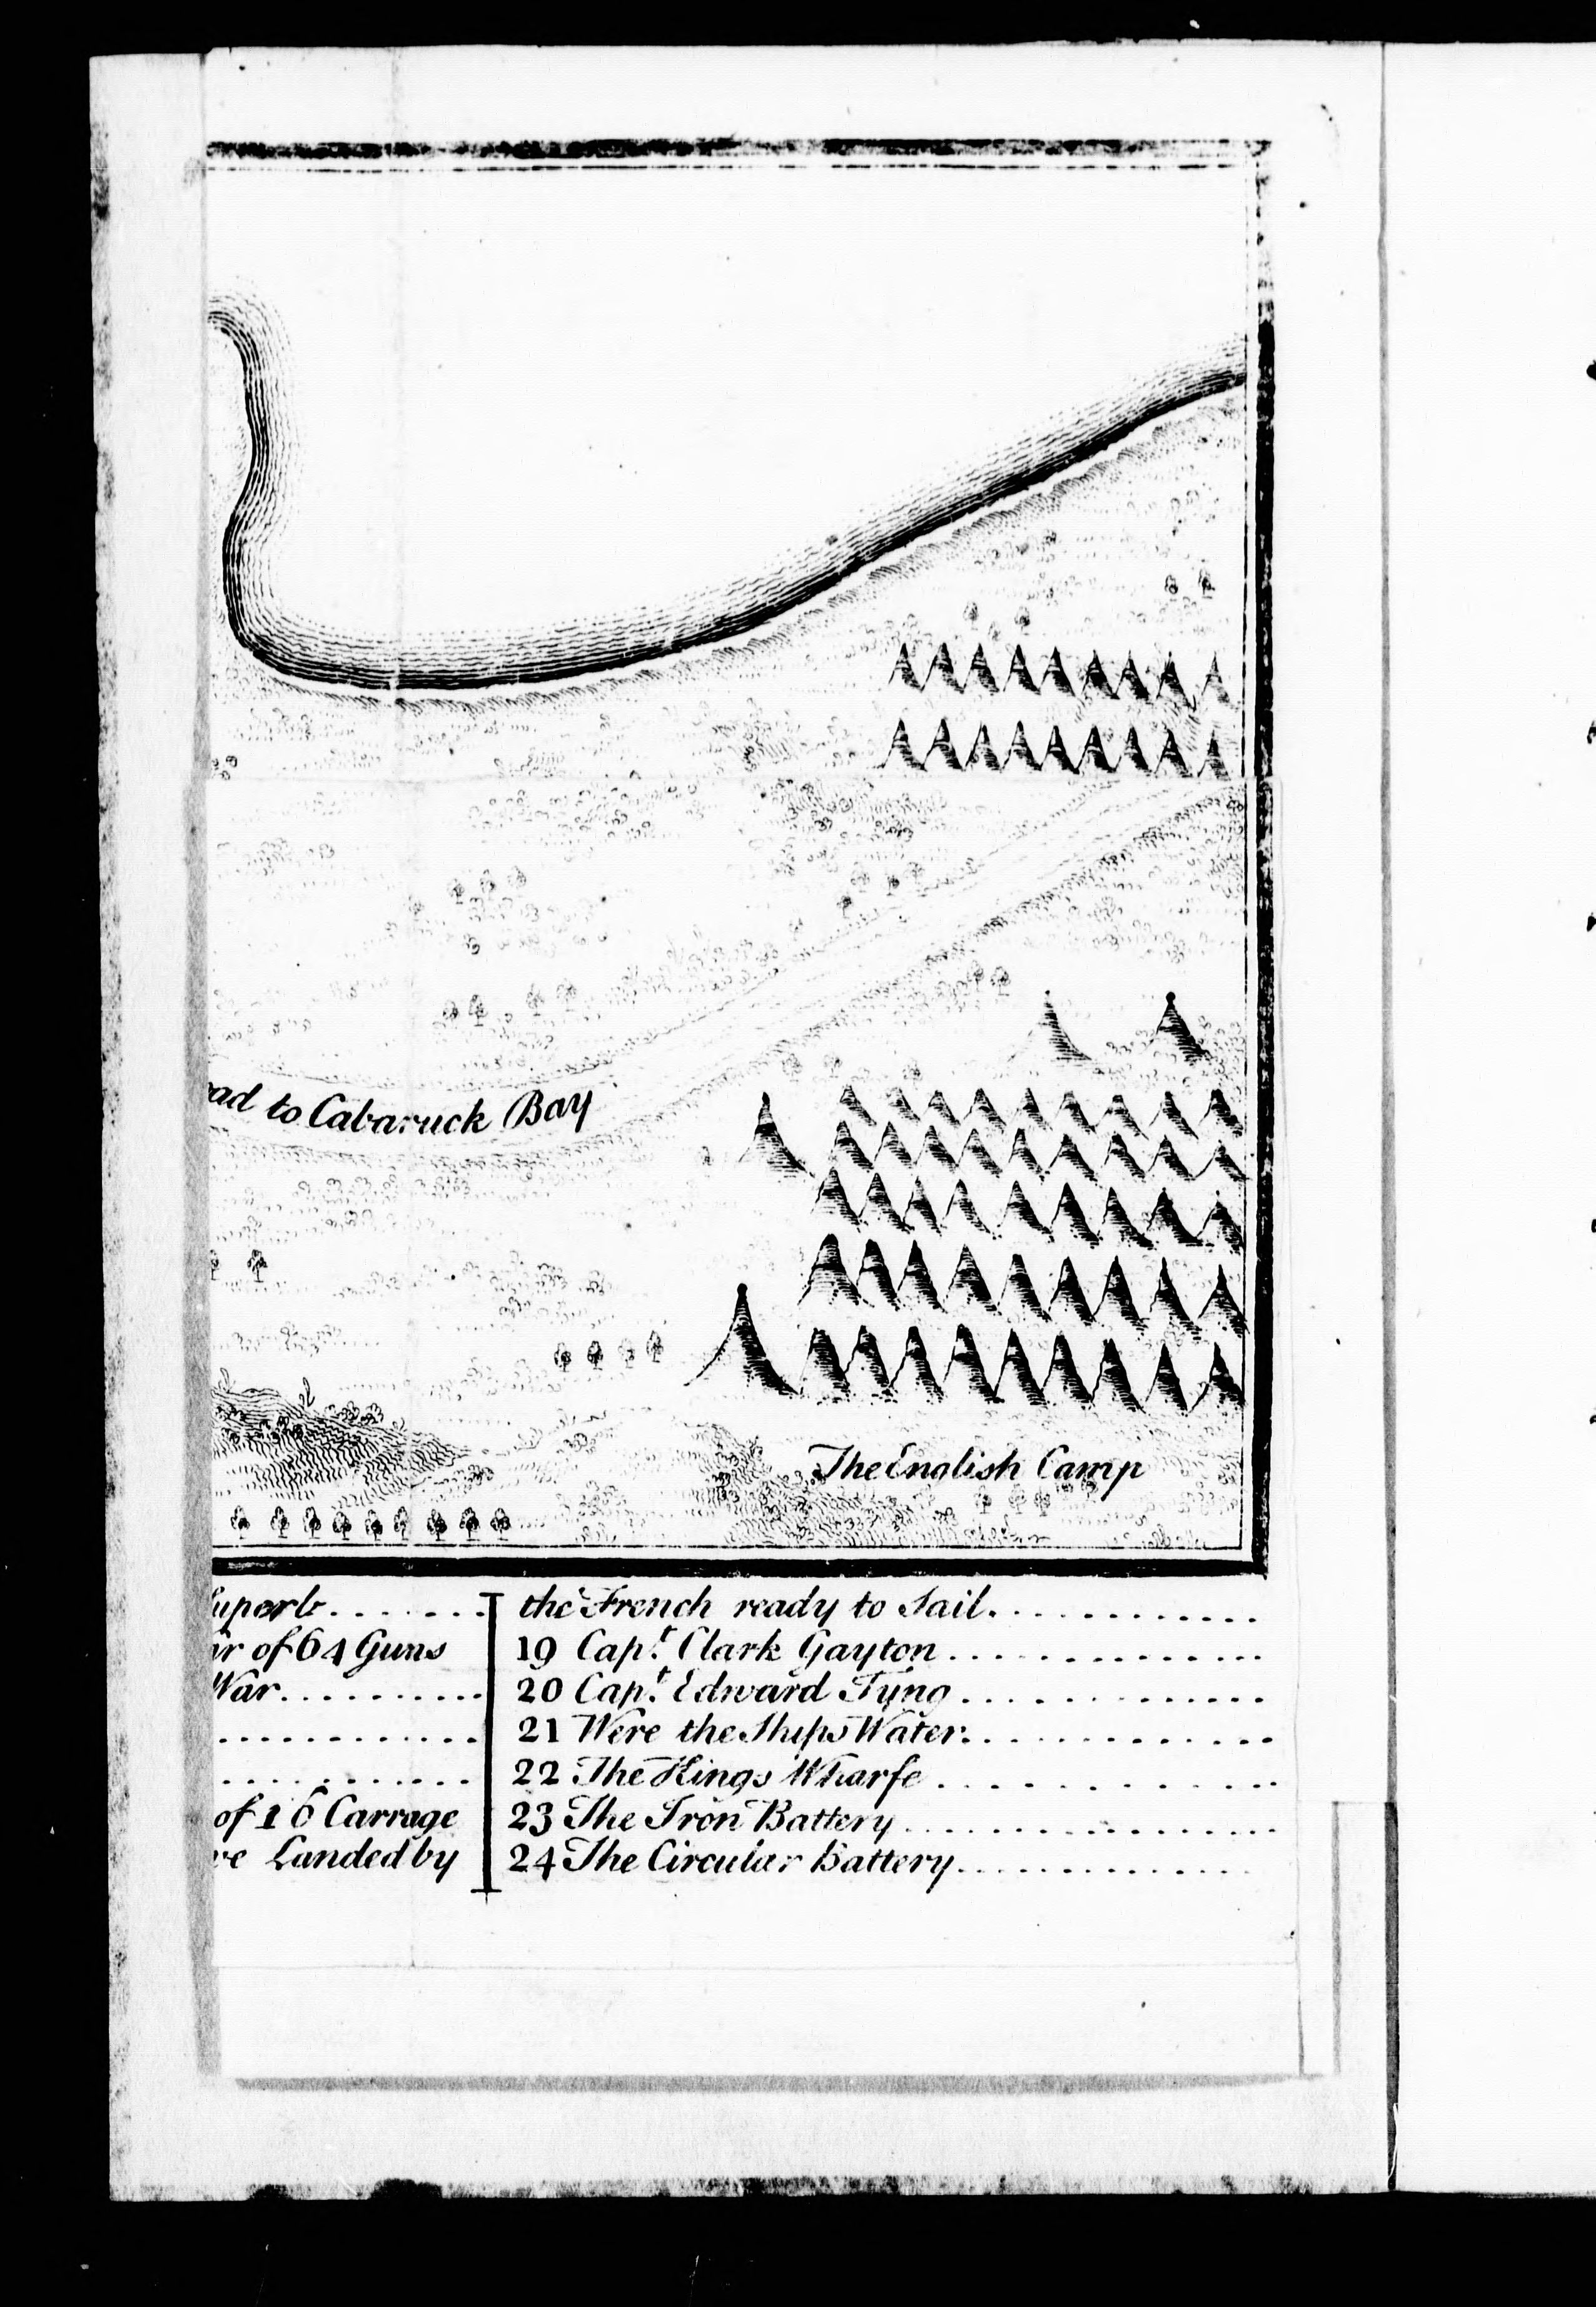 ad to Cabaruck Bay
The English Camp
Superb.......
of 64 Guns
War..........
of 16 Carrage
Landed by
the French ready to Sail.............
19 Capt. Clark Gayton..............
20 Capt. Edward Tyng..............
21 Were the Ships Water..............
22 The Kings Wharfe..............
23 The Iron Battery..............
24 The Circular Battery..............